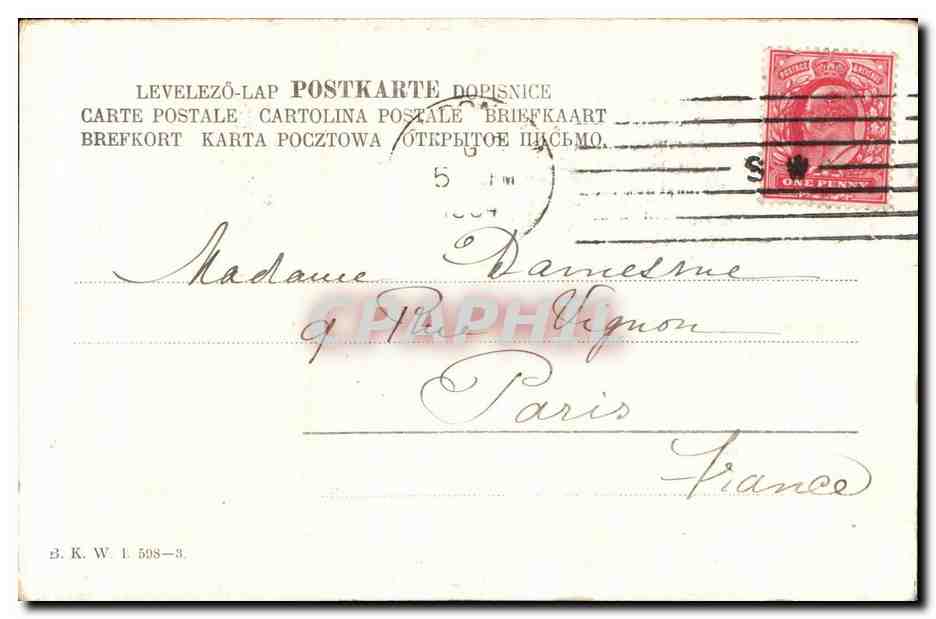 LEVELEZŐ-LAP POSTKARTE DOPISNICE
CARTE POSTALE CARTOLINA POSTALE BRIEFKAART
BREFKORT KARTA POCZTOWA ОТКРЫТОЕ ПИСЬМО.
5 PM
S W
POSTAGE & REVENUE
ONE PENNY
Madame Damesme
9 Rue Vignon
Paris
France
CPAPHIL
B. K. W. I. 598—3.